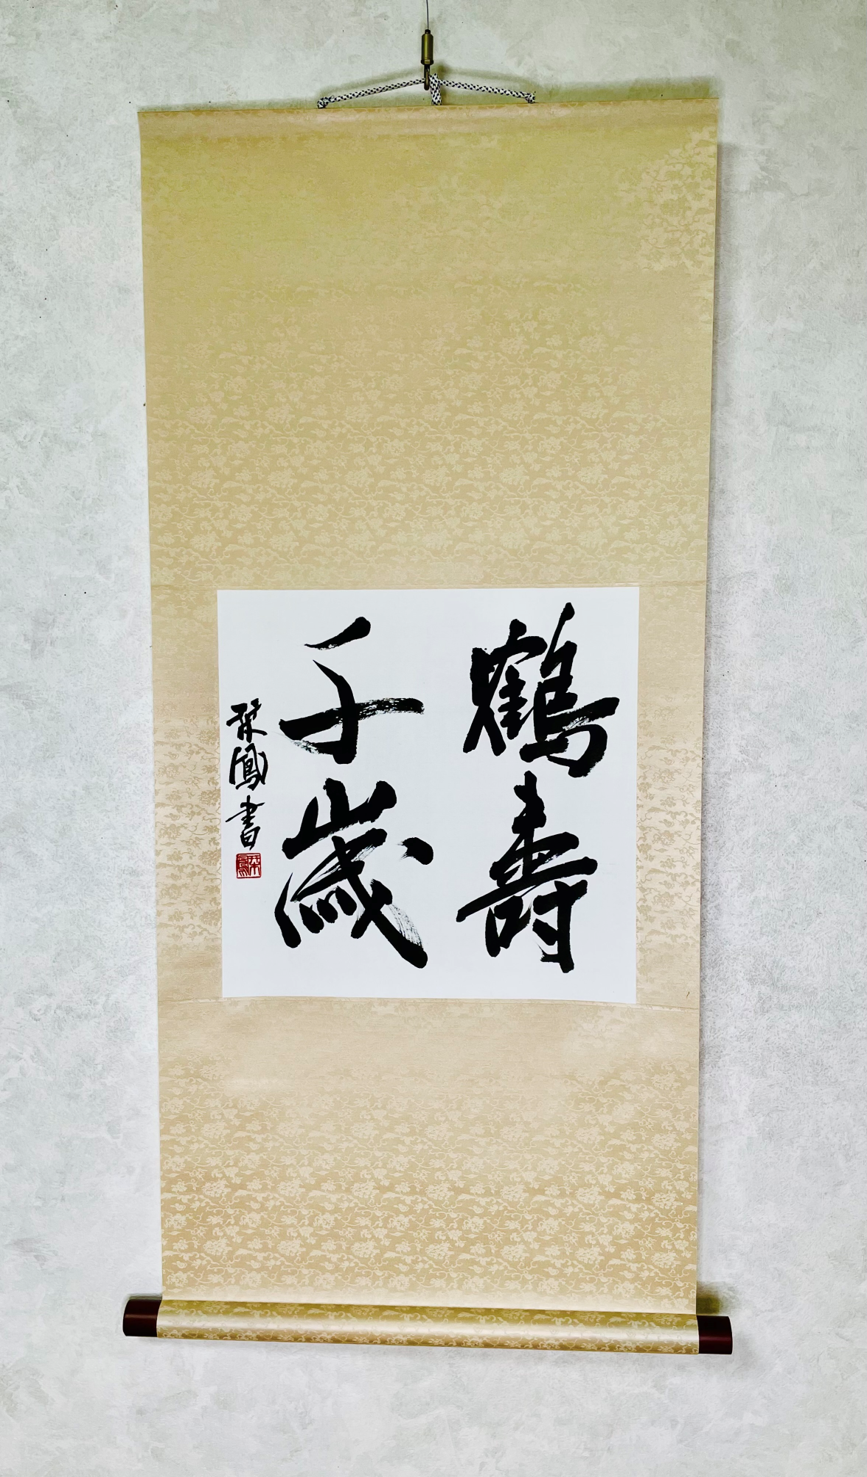 鶴壽
千歳
栞鳳書